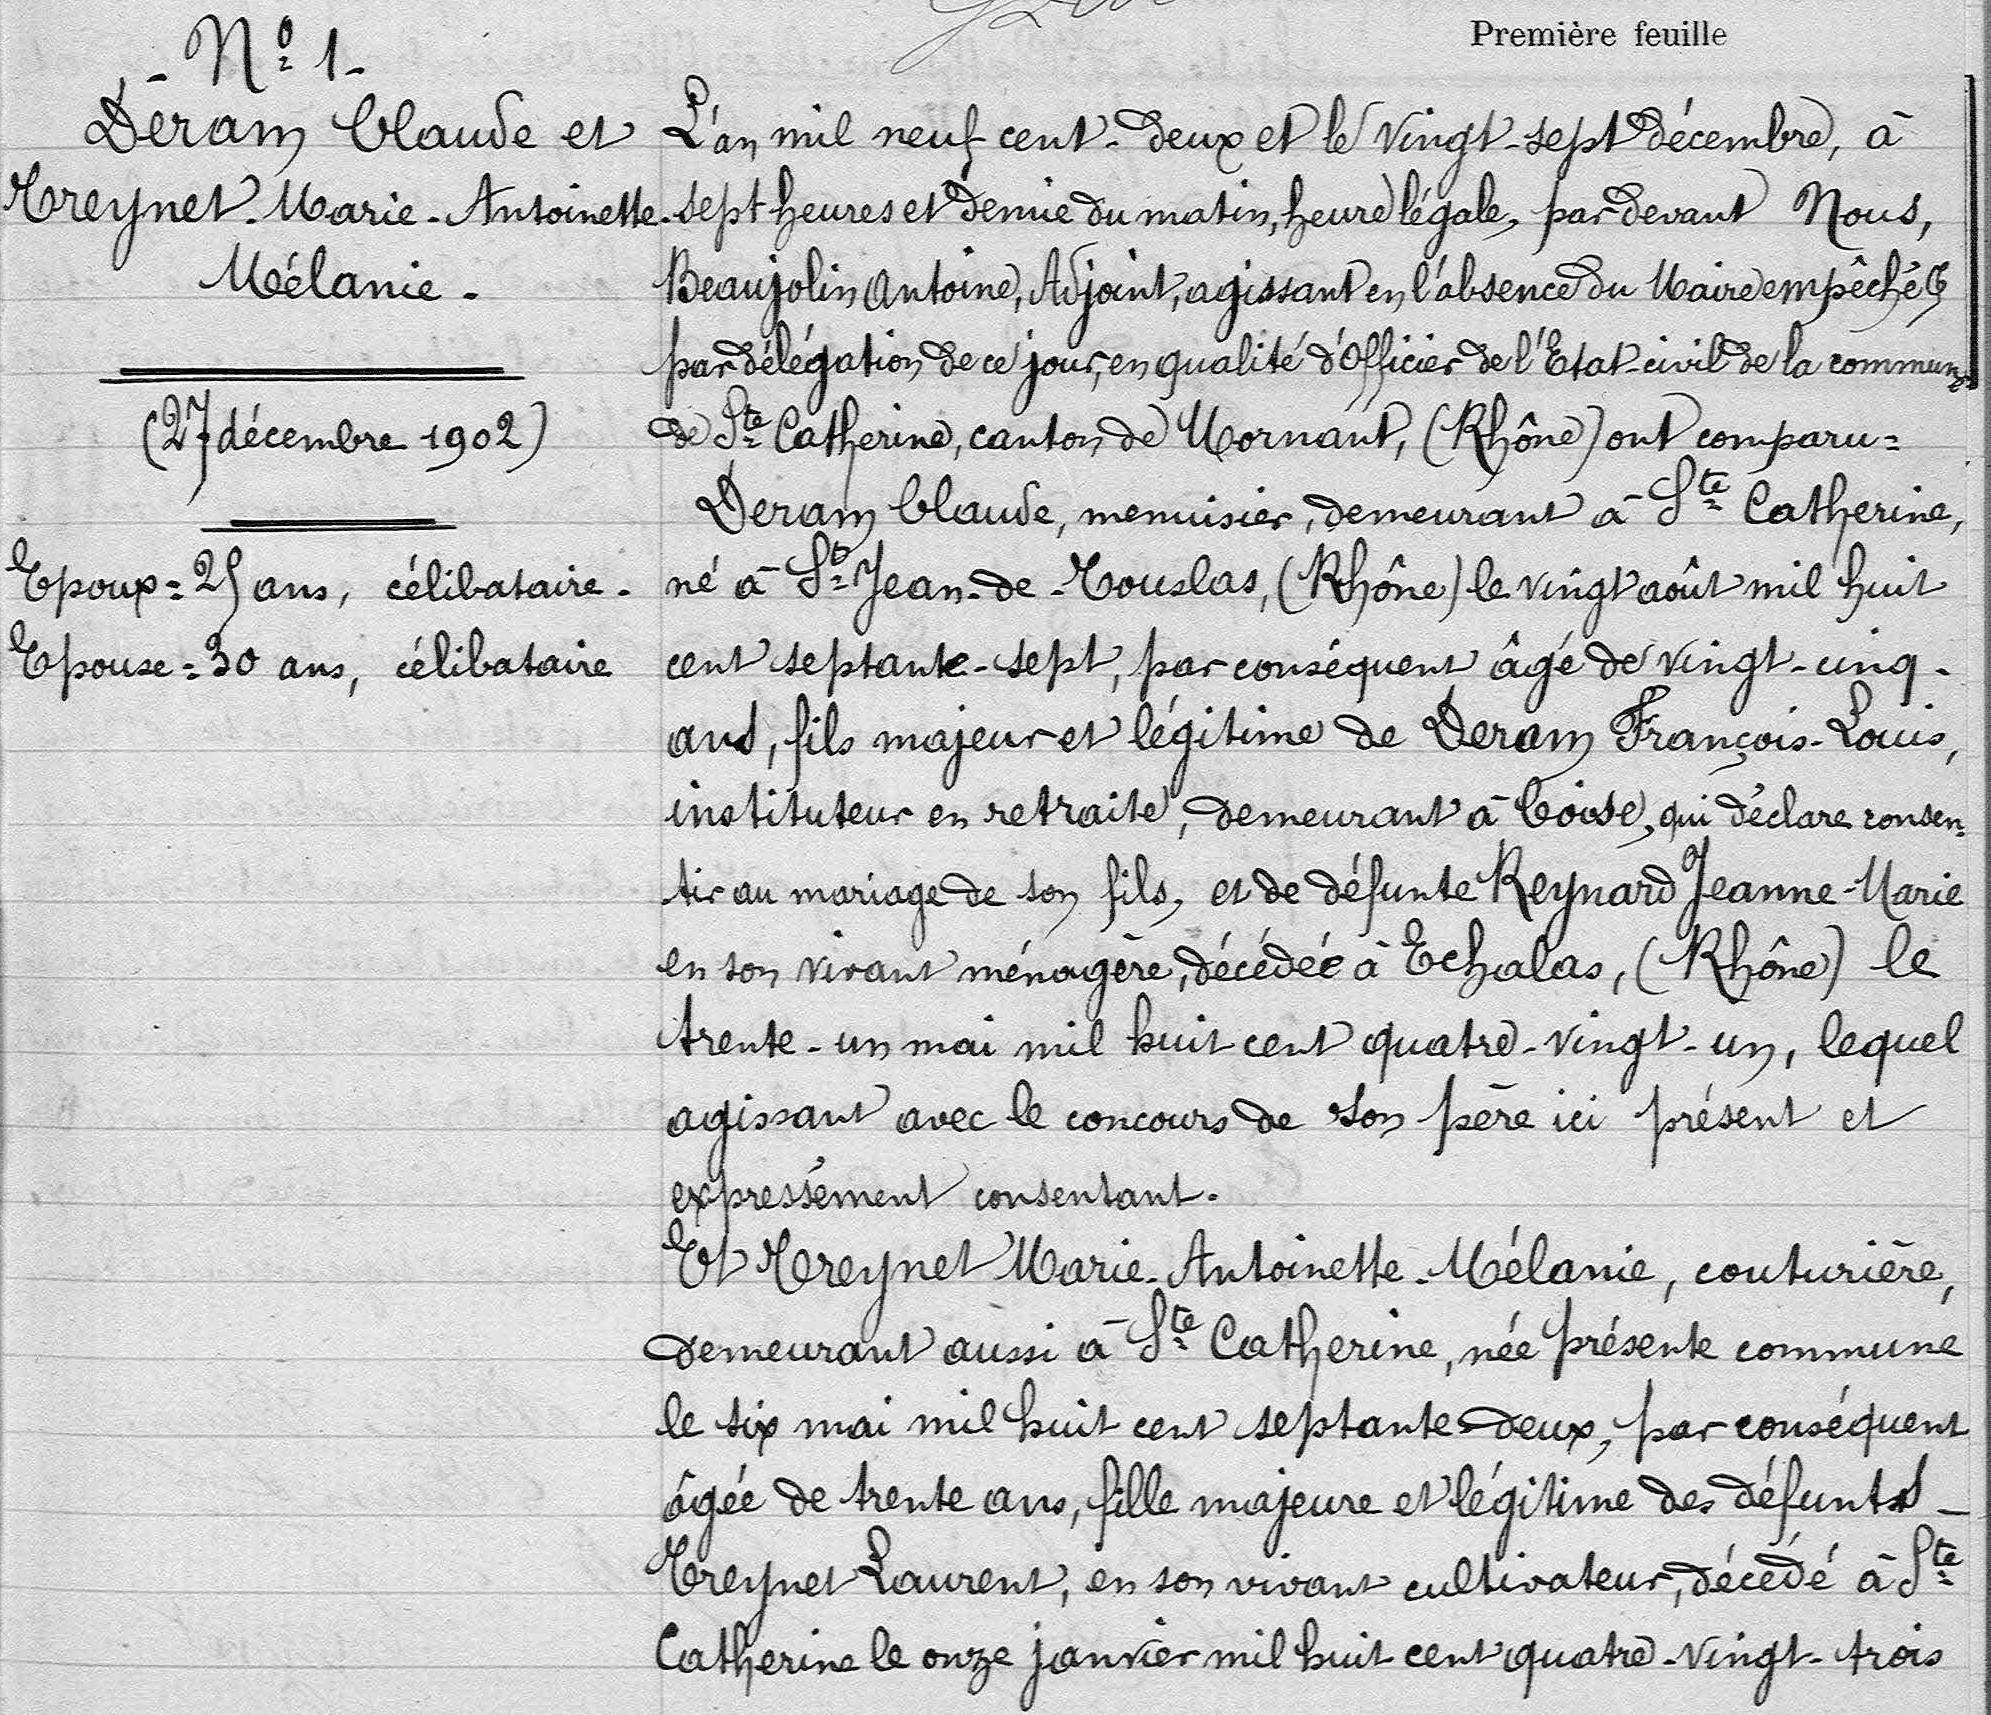 Première feuille
- Nº 1 -
Deram Claude et
Treynet Marie-Antoinette
Mélanie.
(27 décembre 1902)
Epoux = 25 ans, célibataire.
Epouse = 30 ans, célibataire
L'an mil neuf cent-deux et le vingt-sept décembre, à
sept heures et demie du matin, heure légale, par devant Nous,
Beaujolin Antoine, Adjoint, agissant en l'absence du Maire empêché &
par délégation de ce jour, en qualité d'Officier de l'Etat-civil de la commune
de Ste Catherine, canton de Mornant, (Rhône) ont comparu =
Deram Claude, menuisier, demeurant à Ste Catherine,
né à St Jean-de-Touslas, (Rhône) le vingt août mil huit
cent septante-sept, par conséquent âgé de vingt-cinq-
ans, fils majeur et légitime de Deram François-Louis,
instituteur en retraite, demeurant à Coise, qui déclare consen-
tir au mariage de son fils, et de défunte Reynard Jeanne-Marie
en son vivant ménagère, décédée à Echalas, (Rhône) le
trente-un mai mil huit cent quatre-vingt-un, lequel
agissant avec le concours de son père ici présent et
expressément consentant.
Et Treynet Marie-Antoinette-Mélanie, couturière,
demeurant aussi à Ste Catherine, née présente commune
le six mai mil huit cent septante deux, par conséquent
âgée de trente ans, fille majeure et légitime des défunts -
Treynet Laurent, en son vivant cultivateur, décédé à Ste
Catherine le onze janvier mil huit cent quatre-vingt-trois